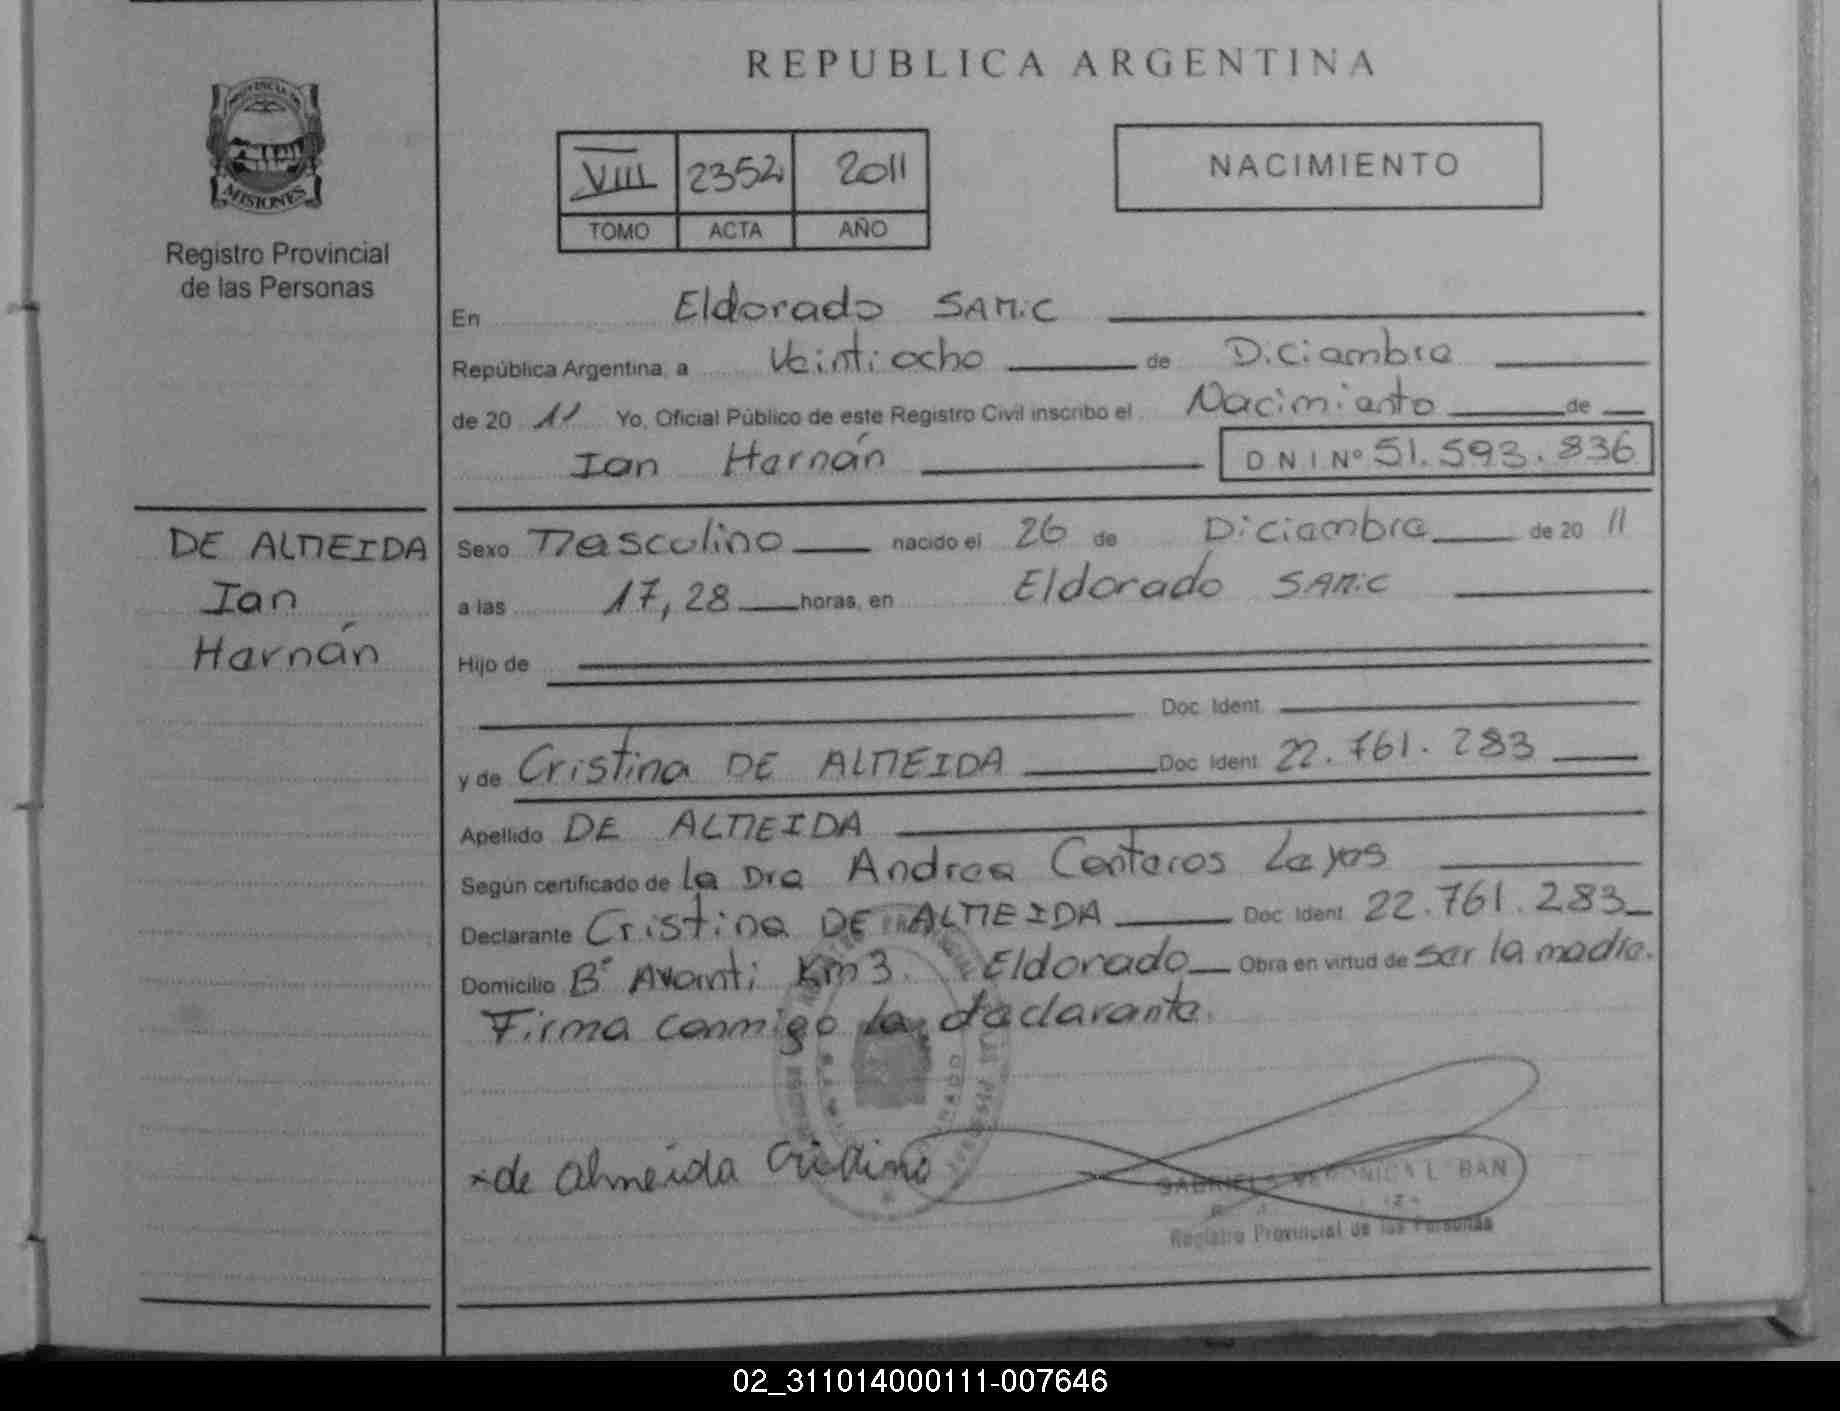 REPUBLICA ARGENTINA
PROVINCIA DE
MISIONES
Registro Provincial
de las Personas
VIII 2352 2011
TOMO ACTA AÑO
NACIMIENTO
En Eldorado SAMIC
República Argentina, a Veintiocho de Diciembre
de 20 11 Yo, Oficial Público de este Registro Civil inscribo el Nacimiento de
Ian Hernán DNI Nº 51.593.836
DE ALMEIDA
Ian
Hernán
Sexo Masculino nacido el 26 de Diciembre de 20 11
a las 17,28 horas, en Eldorado SAMIC
Hijo de
Doc. Ident.
y de Cristina DE ALMEIDA Doc. Ident. 22.761.283
Apellido DE ALMEIDA
Según certificado de la Dra Andrea Centeros Layes
Declarante Cristina DE ALMEIDA Doc. Ident. 22.761.283
Domicilio Bº Avanti Km 3. Eldorado Obra en virtud de ser la madre.
Firma conmigo la declarante.
de Almeida Cristina
Registro Provincial de las Personas
02_311014000111-007646